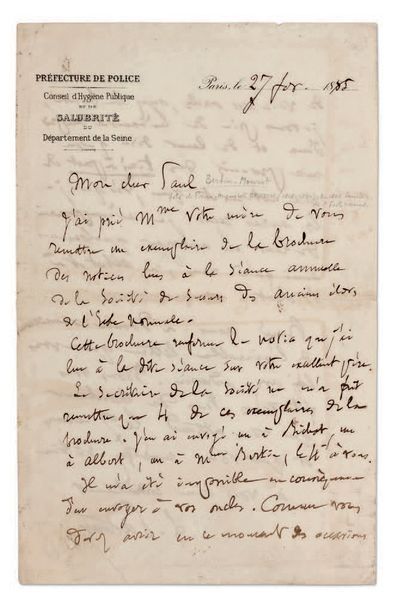 PRÉFECTURE DE POLICE
Conseil d'Hygiène Publique
ET DE
SALUBRITÉ
DU
Département de la Seine
Paris, le 27 fev. 1885
Mon cher Paul
J'ai prié Mme votre mère de vous
remettre un exemplaire de la brochure
des notices lues à la séance annuelle
de la Société de Secours des anciens élèves
de l'Ecole Normale.
Cette brochure renferme la notice que j'ai
lue à la dite séance sur votre excellent père.
Le Secrétaire de la Société ne m'a fait
remettre que 4 de ces exemplaires de la
brochure. J'en ai envoyé un à Bichat un
à albert, un à Mme Bertin, le 4e à vous.
Il m'a été impossible en conséquence
d'en envoyer à vos oncles. Comme vous
devez avoir en ce moment des occasions